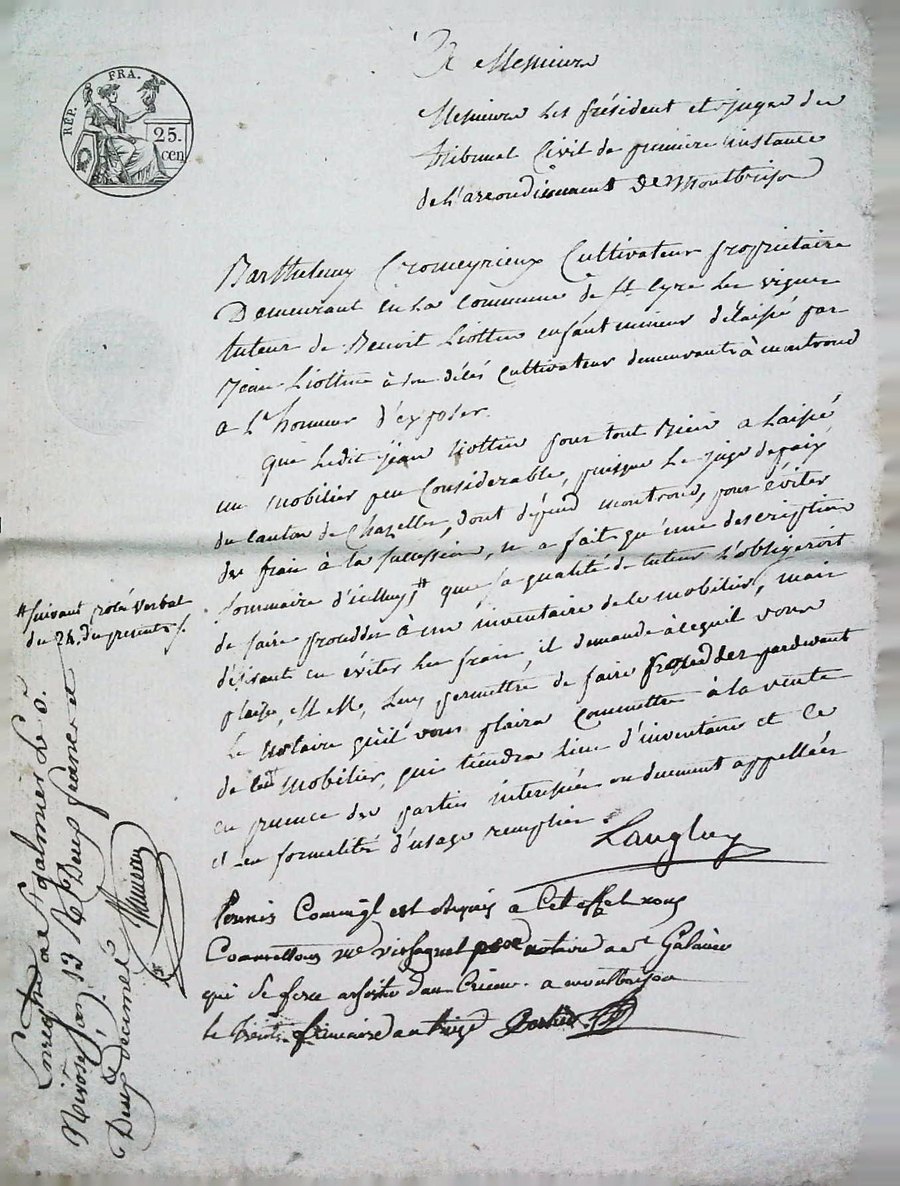 REP. FRA.
25.
cen
A Messieurs
Messieurs les président et juges du
tribunal Civil de premiere instance
de l'arrondissement de Montbrison
Barthelemy Cromeyrieux Cultivateur propriétaire
Demeurant en la Commune de St Cyre les vignes
tuteur de Benoit Liottier enfant mineur délaissé par
Jean Liottier à son décés cultivateur demeurant à montrond
a l'honneur d'exposer.
que ledit jean Liottier pour tout Bien a laissé
un mobilier peu considerable, puisque le juge de paix
du canton de Chazelles, dont dépend montrond, pour éviter
des frais à la succession, ne a fait qu'une description
sommaire d'icelluy,# que sa qualité de tuteur l'obligeroit
de faire procedder à un inventaire de le mobilier, mais
désirant en éviter les frais, il demande à cequil vous
plaise, M M, luy permettre de faire procedder pardevant
le notaire qu'il vous plaira Commettre à la vente
de mobilier, qui tiendra lieu d'inventaire et ce
en presence des parties interessées ou duement appellées
et les formalités d'usage remplies
Langluy
Permis Comme il est requis a Cet effet nous
Commettons me notaire a St Galmier
qui se fera assister d'un Crieur a montbrison
le trente frimaire an treize
# suivant procès verbal
du 24. du present
Enregistré a St Galmier le 8.
Nivose an 13 R Deux francs et
Deux decimes